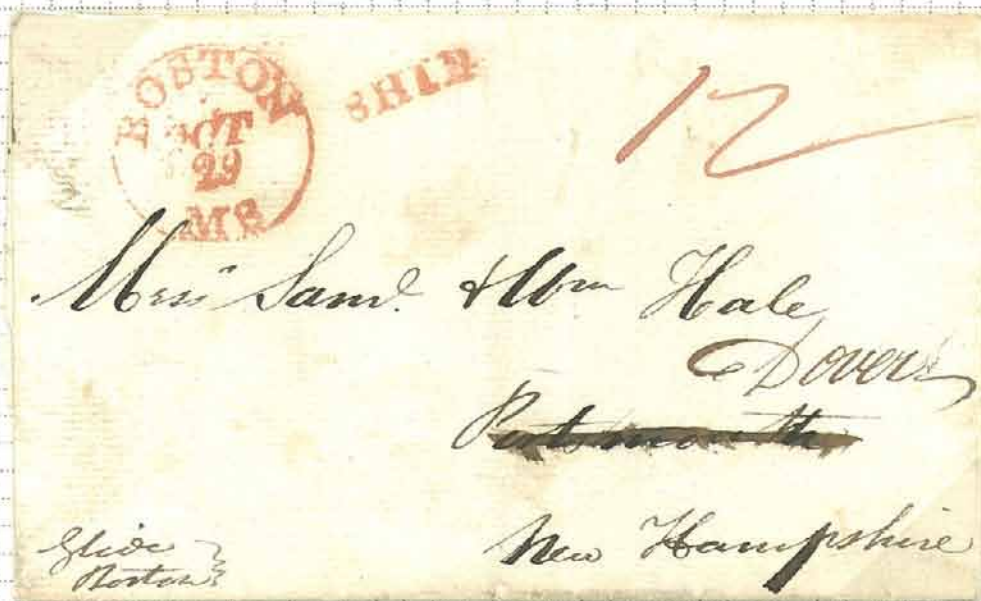 BOSTON
OCT
29
MS
SHIP
12
Mess Saml & Wm Hale
Dover
Portsmouth
New Hampshire
Glide
Boston